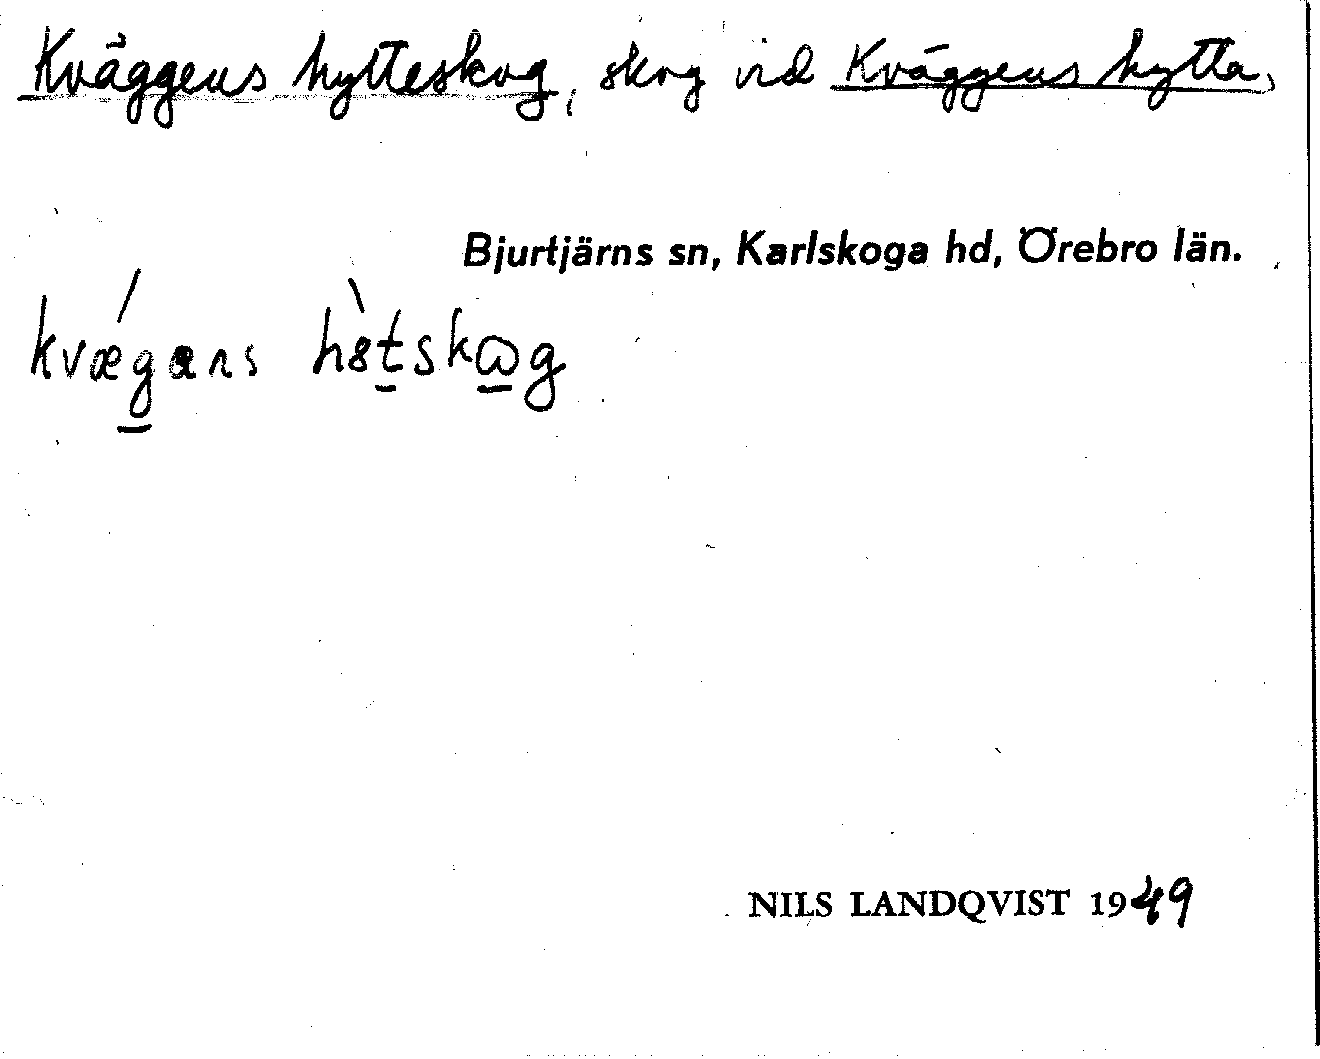 Kväggens hytteskog, skog vid Kväggens hytta,
Bjurtjärns sn, Karlskoga hd, Örebro län.
kvǽg̲ans hèt̲skω̲g
NILS LANDQVIST 1949